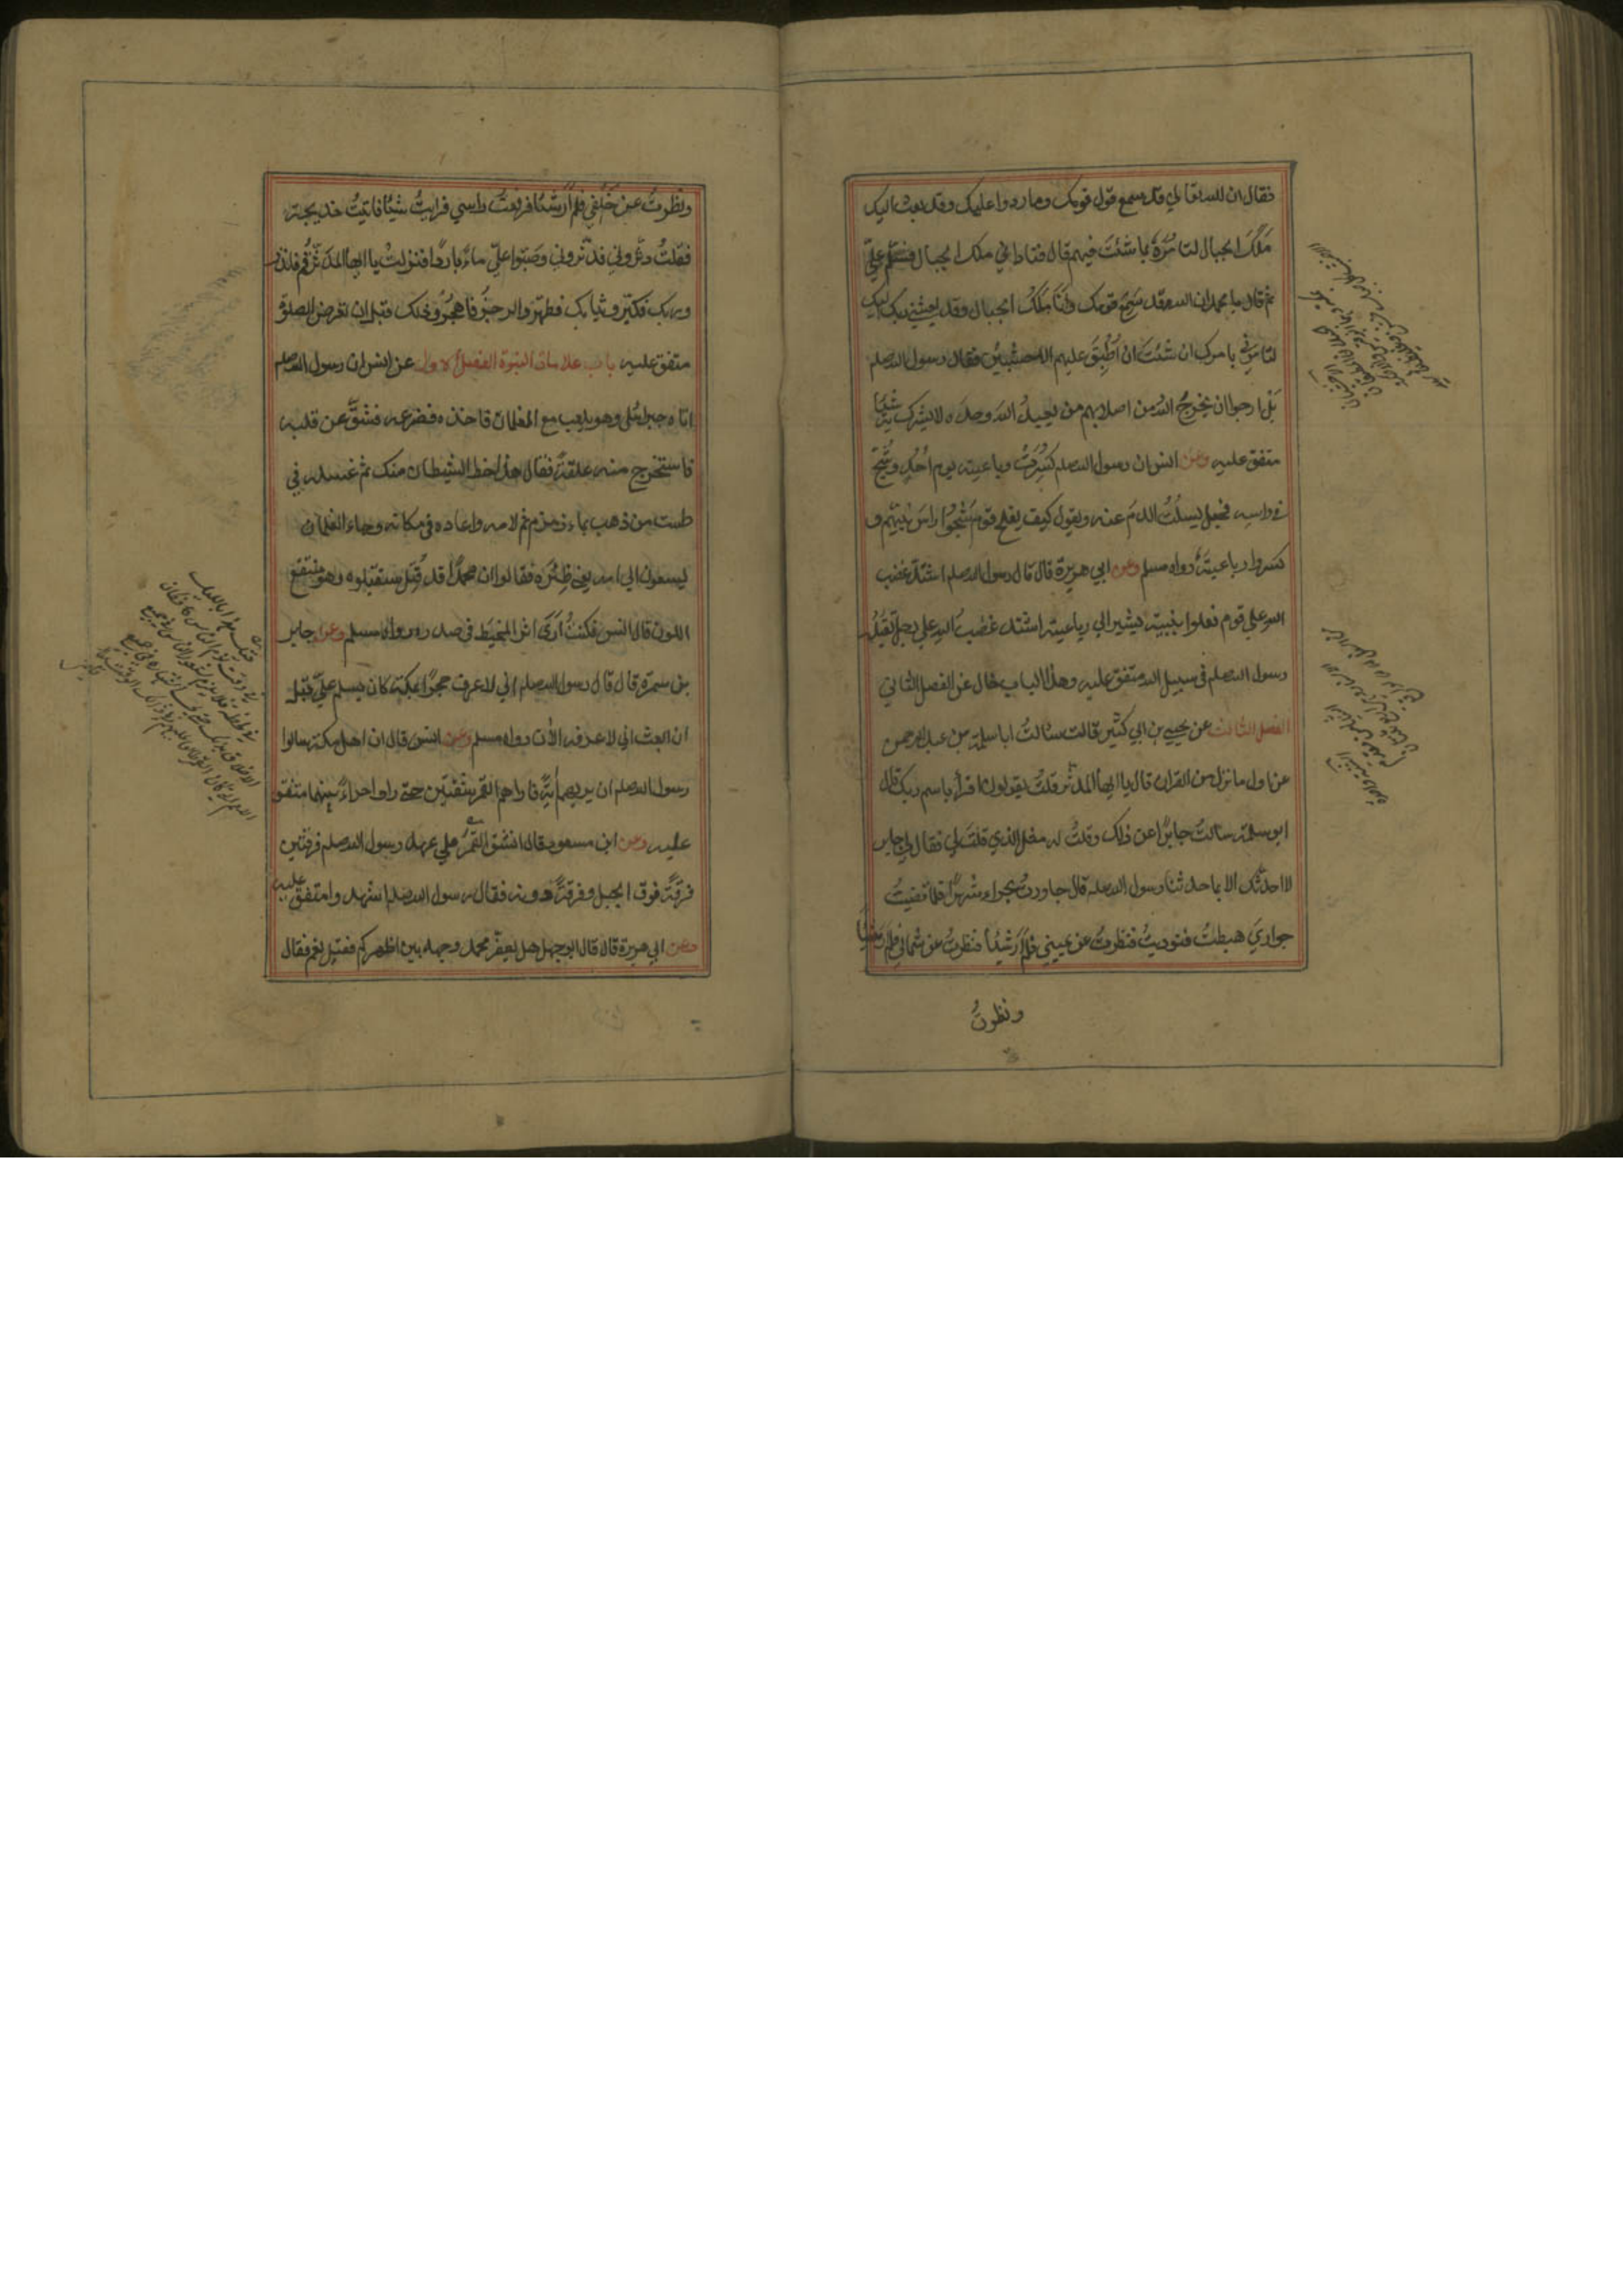 فقال ان الله تعالى قد سمع قول قومك وما ردوا عليك وقد بعث اليك
مَلَكَ الجبال لتامُرَهُ بما شئتَ فيهم قال فناداني ملك الجبال فسَلّم عليَّ
ثم قال يا محمد ان الله قد سَمِعَ قومك وانَا مَلَكُ الجبال وقد بعثني ربك اليك
لتامرني بامرك ان شئتَ ان اُطبِقَ عليهم الاخشبين فقال رسول الله صلعم
بَل ارجوا ان يخرجُ الله من اصلابهم من يعبدُ الله وحدَه لا يشرك به شيئًا
متفق عليه وعن انس ان رسول الله صلعم كُسِرَتْ رباعيته يوم اُحُدٍ وشُجَّ
في راسه فجعل يسلُتُ الدمَ عنه ويقول كيف يفلح قوم شجُّوا راسَ نبيّهم و
كسروا رباعيتَهُ رواه مسلم وعن ابي هريرة قال قال رسول الله صلعم اشتدّ غضب
الله على قوم فعلوا بنبيّه يشير الى رباعيته اشتدّ غضبُ الله على رجل يَقتُلُه
رسول الله صلعم في سبيل الله متفق عليه وهذا الباب خال عن الفصل الثاني
الفصل الثالث عن يحيى بن ابي كثير قالت سالتُ ابا سلمة بن عبد الرحمن
عن اول ما نزل من القران قال يا ايها المدّثر قلتُ يقولون اقرأ باسم ربك قال
ابو سلمة سالتُ جابرًا عن ذلك وقلتُ له مثل الذي قلتَ لي فقال لي جابر
لا احدثُك الا بما حدثنا رسول الله صلعم قال جاورتُ بحراء شهرًا فلما قضيتُ
جواري هبطتُ فنوديتُ فنظرتُ عن يميني فلم اَرَ شيئًا فنظرتُ عن شمالي فلم ار شيئًا
ونظرتُ
ونظرتُ عن خَلْفِي فلم اَرَ شيئًا فرفعتُ راسي فرايتُ شيئًا فاتيتُ خديجة
فقلتُ دثّروني فدثّروني وصَبّوا عليَّ ماءً باردًا فنزلتْ يا ايها المدّثّر قم فانذر
وربك فكبّر وثيابك فطهّر والرجزَ فاهجُرْ وذلك قبل ان تفرض الصلوة
متفق عليه باب علامات النبوة الفصل الاول عن انس ان رسول الله صلعم
اتاه جبرئيل وهو يلعب مع الغلمان فاخذه فصرعه فشقَّ عن قلبه
فاستخرج منه علقةً فقال هذا حظ الشيطان منك ثم غسله في
طست من ذهب بماء زمزم ثم لامه واعاده في مكانه وجاء الغلمان
يسعون الى امه يعني ظِئْرَه فقالوا ان محمدًا قد قُتِل فاستقبلوه وهو منتقع
اللون قال انس فكنتُ اَرَى اثر المِخيَط في صدره رواه مسلم وعن جابر
بن سمرة قال قال رسول الله صلعم اني لاعرف حجرًا بمكة كان يسلم عليَّ قبل
ان ابعث اني لاعرفه الأن رواه مسلم وعن انس قال ان اهل مكة سالوا
رسول الله صلعم ان يريهم أيةً فاراهم القمر شقّتين حتى راوا حراءً بينهما متفق
عليه وعن ابن مسعود قال انشق القمرُ على عهد رسول الله صلعم فرقتين
فرقةً فوق الجبل وفرقةً دونه فقال رسول الله صلعم اشهدوا متفق عليه
وعن ابي هريرة قال قال ابو جهل هل يعفّر محمد وجهه بين اظهركم فقيل نعم فقال